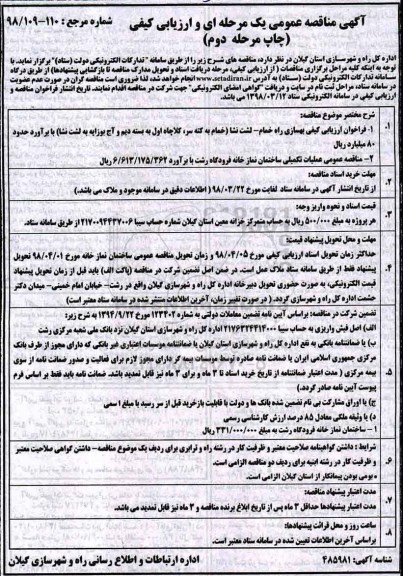 آگهی مناقصه عمومی یک مرحله ای و ارزیابی کیفی
(چاپ مرحله دوم)
شماره مرجع : ۱۱۰-۹۸/۱۰۹
اداره کل راه و شهرسازی استان گیلان در نظر دارد، مناقصه های شرح زیر را از طریق سامانه "تدارکات الکترونیکی دولت (ستاد)" برگزار نماید. با
توجه به اینکه کلیه مراحل برگزاری مناقصات ( از ارزیابی کیفی، مرحله دریافت اسناد و تحویل مدارک مناقصه تا بازگشایی پیشنهادها) از طریق درگاه
سامانه تدارکات الکترونیکی دولت (ستاد) به آدرس www.setadiran.ir انجام خواهد شد، لذا ضروری است مناقصه گران در صورت عدم عضویت
در سامانه ستاد، مراحل ثبت نام در سایت و دریافت "گواهی امضای الکترونیکی" جهت شرکت در مناقصه اقدام نمایند. تاریخ انتشار فراخوان مناقصه و
ارزیابی کیفی در سامانه الکترونیکی ستاد ۱۳۹۸/۰۳/۱۲ می باشد.
۱.
شرح مختصر موضوع مناقصه:
۱- فراخوان ارزیابی کیفی بهسازی راه خمام- لشت نشا (خمام به کته سر، کلاچاه اول به بسته دیم و آج بوزایه به لشت نشا) با برآورد حدود
۸۰ میلیارد ریال
۲- مناقصه عمومی عملیات تکمیلی ساختمان نماز خانه فرودگاه رشت با برآورد ۶/۶۱۳/۱۷۵/۳۶۲ ریال
۲.
مهلت خرید اسناد مناقصه:
از تاریخ انتشار آگهی در سامانه ستاد لغایت مورخ ۹۸/۰۳/۲۲ ( اطلاعات دقیق در سامانه موجود و ملاک می باشد.)
۳.
قیمت اسناد و نحوه واریز وجه:
هر پروژه به مبلغ ۵۰۰/۰۰۰ ریال به حساب متمرکز خزانه معین استان گیلان شماره حساب سیبا ۲۱۷۰۰۹۴۴۳۷۰۰۶ از طریق سامانه ستاد.
۴.
مهلت و محل تحویل پیشنهاد قیمت:
حداکثر زمان تحویل اسناد ارزیابی کیفی مورخ ۹۸/۰۴/۰۵ و زمان تحویل مناقصه عمومی ساختمان نماز خانه مورخ ۹۸/۰۴/۰۱ تحویل
پیشنهاد فقط از طریق سامانه ستاد ملاک عمل است. در ضمن اصل تضمین شرکت در مناقصه (پاکت الف) باید قبل از زمان تحویل پیشنهاد
قیمت الکترونیکی، به صورت حضوری تحویل دبیرخانه اداره کل راه و شهرسازی گیلان واقع در رشت- خیابان امام خمینی- میدان دکتر
حشمت اداره کل راه و شهرسازی گردد. ( در صورت تغییر زمان، آخرین اطلاعات منتشر شده در سامانه ستاد معتبر است)
۵.
تضمین شرکت در مناقصه: براساس آیین نامه تضمین معاملات دولتی به شماره ۱۲۳۴۰۲ مورخ ۱۳۹۴/۹/۲۲ به شرح زیر:
الف) اصل فیش واریزی به حساب سیبا ۲۱۷۶۳۲۴۴۱۴۰۰۰ اداره کل راه و شهرسازی استان گیلان نزد بانک ملی شعبه مرکزی رشت
ب) یا ضمانتنامه بانکی به نفع اداره کل راه و شهرسازی استان گیلان یا ضمانتنامه موسسات اعتباری غیر بانکی که دارای مجوز از طرف بانک
مرکزی جمهوری اسلامی ایران یا ضمانت نامه صادره توسط موسسات بیمه گر دارای مجوز لازم برای فعالیت و صدور ضمانت نامه از سوی
بیمه مرکزی ( مدت اعتبار ضمانتنامه از تاریخ خرید اسناد تا ۳ ماه و برای ۳ ماه نیز قابل تمدید باشد. ضمانت نامه باید فقط بر اساس فرم
پیوست آیین نامه صادر گردد.)
ج) یا اوراق مشارکت بی نام تضمین شده بانک ها و دولت با قابلیت بازخرید قبل از سر رسید با مبلغ اسمی
د) یا وثیقه ملکی معادل ۸۵ درصد ارزش کارشناسی رسمی
۱- ساختمان نماز خانه فرودگاه رشت به مبلغ ۳۳۱/۰۰۰/۰۰۰ ریال
۶.
شرایط : داشتن گواهینامه صلاحیت معتبر و ظرفیت کار در رشته راه و ترابری برای ردیف یک موضوع مناقصه- داشتن گواهی صلاحیت معتبر
و ظرفیت کار در رشته ابنیه برای ردیف دو مناقصه الزامی است.
- بومی بودن پیمانکار از استان گیلان الزامی است.
۷.
مدت اعتبار پیشنهاد مناقصه:
مدت اعتبار پیشنهادها حداقل ۳ ماه پس از تاریخ ابلاغ برنده مناقصه و ۳ ماه نیز قابل تمدید می باشد.
۸.
ساعت روز و محل قرائت پیشنهادها:
براساس آخرین اطلاعات تعیین شده در سامانه ستاد معتبر است.
شناسه آگهی: ۴۸۵۹۸۱
اداره ارتباطات و اطلاع رسانی راه و شهرسازی گیلان